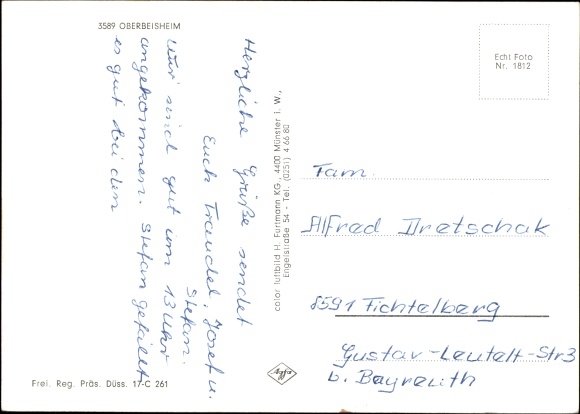 3589 OBERBEISHEIM
Herzliche Grüße sendet
Euch Traudel, Josef u.
Stefan.
Wir sind gut um 13 Uhr
angekommen. Stefan gefällt
es gut bei den
color luftbild H. Furtmann KG, 4400 Münster i. W.,
Engelstraße 54 - Tel. (0251) 4 66 80
Echt Foto
Nr. 1812
Fam.
Alfred Dretschak
8591 Fichtelberg
Gustav-Leutelt-Str3
b. Bayreuth
Agfa
Frei. Reg. Präs. Düss. 17-C 261